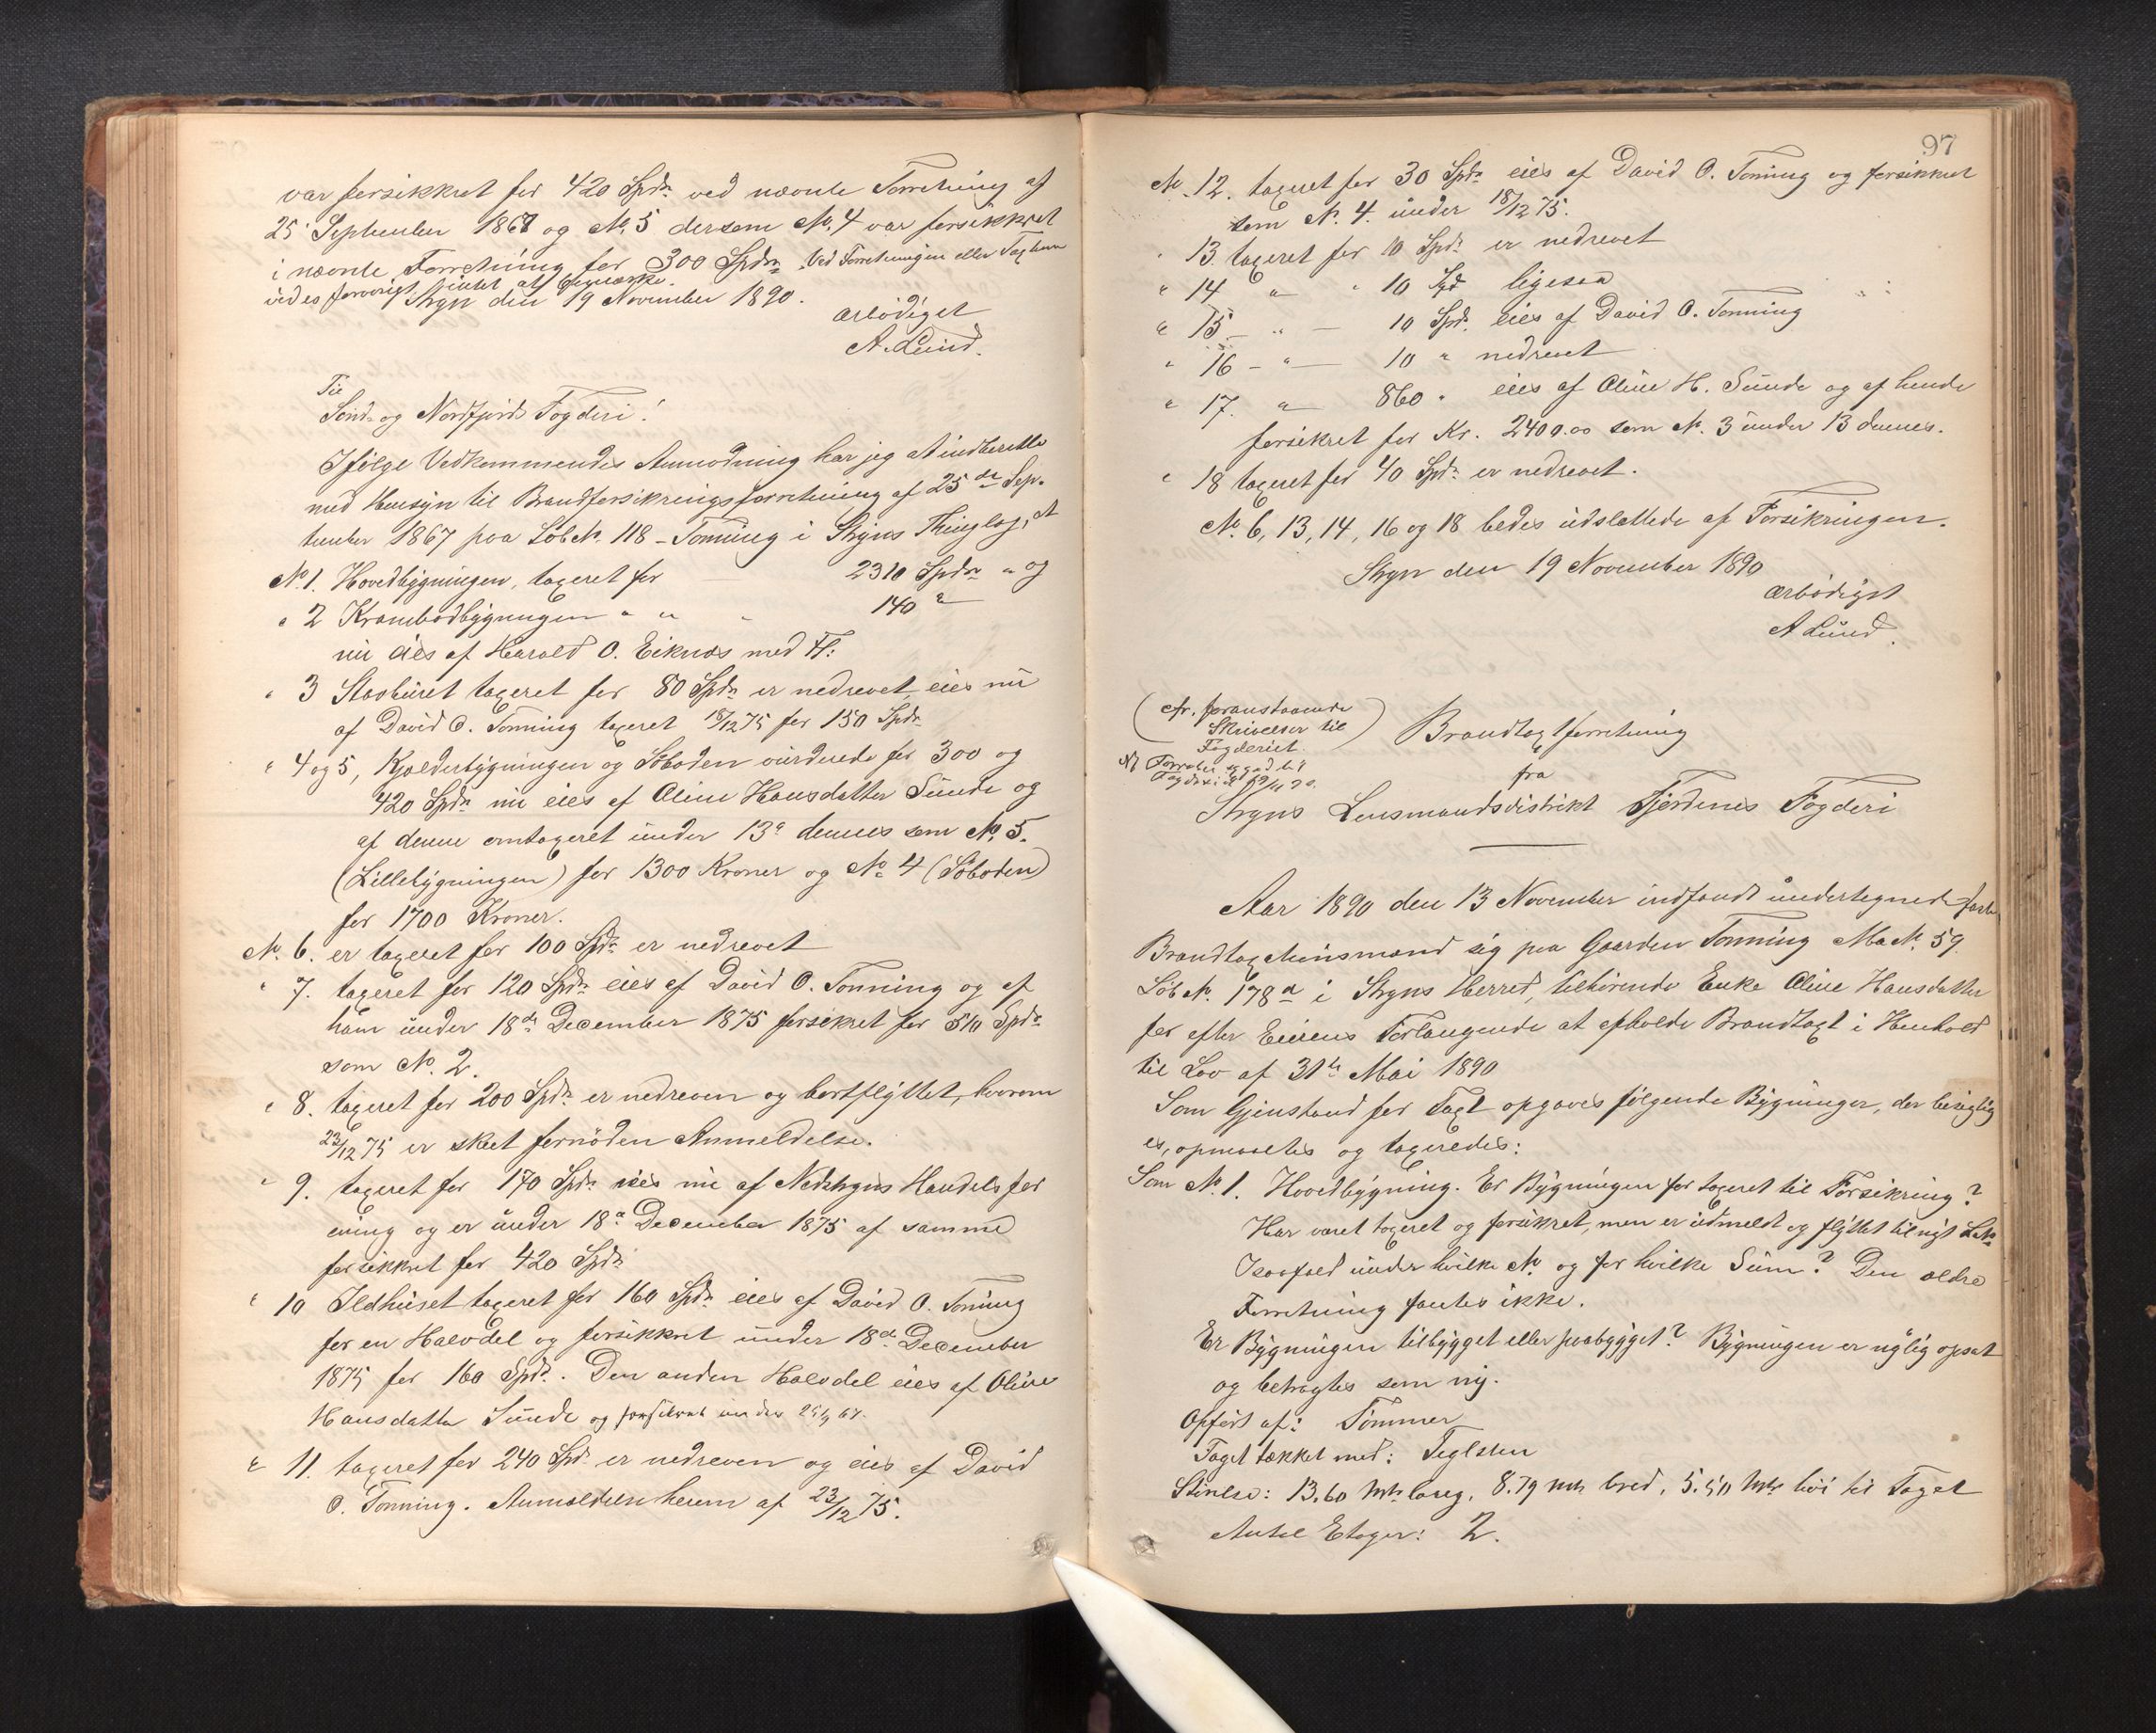 var forsikkret for 420 Spdr ved nævnte Forretning af
25 September 1867 og No. 5 dersom No. 4 var forsikkret
i nævnte Forretning for 300 Spdr. Ved Forretningen eller Taxten
vides forøvrigt intet at bemærke.
Stryn den 19 November 1890.
ærbødigst
A. Lund.
Til
Sønd- og Nordfjords Fogderi!
Ifølge Vedkommendes Anmodning har jeg at indberette
med Hensyn til Brandforsikringsforretning af 25de Sep-
tember 1867 paa Løb No. 118 - Tonning i Stryns Thinglag, at
No. 1. Hovedbygningen, taxeret for 2310 Spdr " og
" 2 Krambodbygningen " " " 140 "
nu eies af Harald O. Eiknæs med Fl:
" 3 Stabburet taxeret for 80 Spdr er nedrevet, eies nu
af David O. Tonning taxeret 18/12 75 for 150 Spdr
" 4 og 5, Kjælderbygningen og Søboden vurderede for 300 og
420 Spdr nu eies af Oline Hansdatter Sunde og
af denne omtaxeret under 13de dennes som No. 5.
(Lillebygningen) for 1300 Kroner og No 4 (Søboden)
for 1700 Kroner.
No. 6. er taxeret for 100 Spdr er nedrevet
" 7. taxeret for 120 Spdr eies af David O. Tonning og af
ham under 18de December 1875 forsikret for 510 Spdr
som No. 2.
" 8. taxeret for 200 Spdr er nedreven og bortflyttet, hvorom
23/12 75 er skeet fornøden Anmeldelse.
" 9. taxeret for 170 Spdr eies nu af Nedstryns Handelsfor
ening og er under 18de December 1875 af samme
forsikkret for 420 Spdr
" 10 Ildhuset taxeret for 160 Spdr eies af David O. Tonning
for en Halvdel og forsikkret under 18de December
1875 for 160 Spdr. Den anden Halvdel eies af Oline
Hansdatter Sunde og forsikret under 25/9 67.
" 11. taxeret for 240 Spdr er nedreven og eies af David
O. Tonning. Anmeldelse herom af 23/12 75.
97
No. 12. taxeret for 30 Spdr eies af David O. Tonning og forsikkret
som No. 4. under 18/12 75.
" 13. taxeret for 10 Spdr er nedrevet
" 14 " " 10 Spd ligesaa
" 15 - " - 10 Spd. eies af David O. Tonning
" 16 - " - 10 " nedrevet
" 17. " 860 " eies af Oline H. Sunde og af hende
forsikret for Kr. 2400.00 som No. 3 under 13 dennes.
" 18 taxeret for 40 Spdr er nedrevet.
No. 6, 13, 14, 16 og 18 bedes udslettede af Forsikringen.
Stryn den 19 November 1890
ærbødigst
A Lund.
(cfr. foranstaaende
Skrivelser til
Fogderiet.)
Brandtaxtforretning
fra
Stryns Lensmandsdistrikt Fjordenes Fogderi
Aar 1890 den 13 November indfandt undertegnede faste
Brandtaxtsmænd sig paa Gaarden Tonning Ma No. 59.
Løb No. 178a i Stryns Herred, tilhørende Enke Oline Hansdatter
for efter Eierens Forlangende at afholde Brandtaxt i Henhold
til Lov af 31te Mai 1890
Som Gjenstand for Taxt opgaves følgende Bygninger, der besigtig
es, opmaaltes og taxeredes:
Som No. 1. Hovedbygning. Er Bygningen før taxeret til Forsikring?
Har været taxeret og forsikret, men er udmeldt og flyttet til nyt L No
Isaafald under hvilke No. og for hvilke Sum? Den ældre
Forretning fantes ikke.
Er Bygningen tilbygget eller paabygget? Bygningen er nylig opsat
og betragtes som ny.
Opført af: Tømmer
Taget tækket med: Teglsten
Størrelse: 13.60 Mtr lang, 8.79 Mtr bred, 5.50 Mtr høi til Taget
Antal Etager: 2.